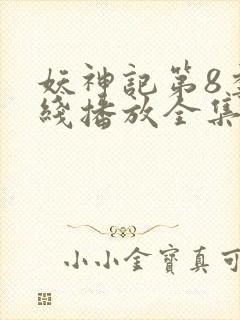 妖神記第8季
綫播放全集
小小金寶真可